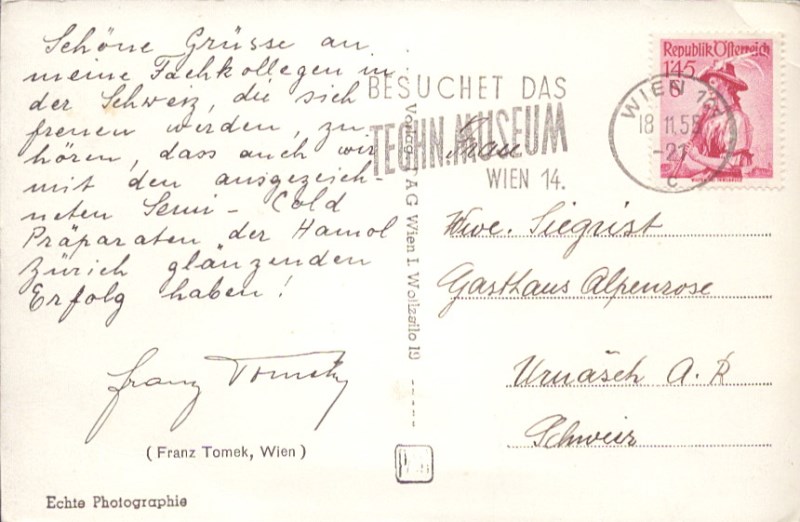 Schöne Grüsse an
meine Fachkollegen in
der Schweiz, die sich
freuen werden, zu
hören, dass auch wir
mit den ausgezeich-
neten Semi-Cold
Präparaten der Hamol
Zürich glänzenden
Erfolg haben!
Franz Tomek
(Franz Tomek, Wien)
Echte Photographie
BESUCHET DAS
TECHN. MUSEUM
WIEN 14.
Republik Österreich
1'45
S
WIEN
18 11.55
-21
c
AG Wien I. Wollzeile 19
Frau
Wwe. Siegrist
Gasthaus Alpenrose
Urnäsch A. R
Schweiz